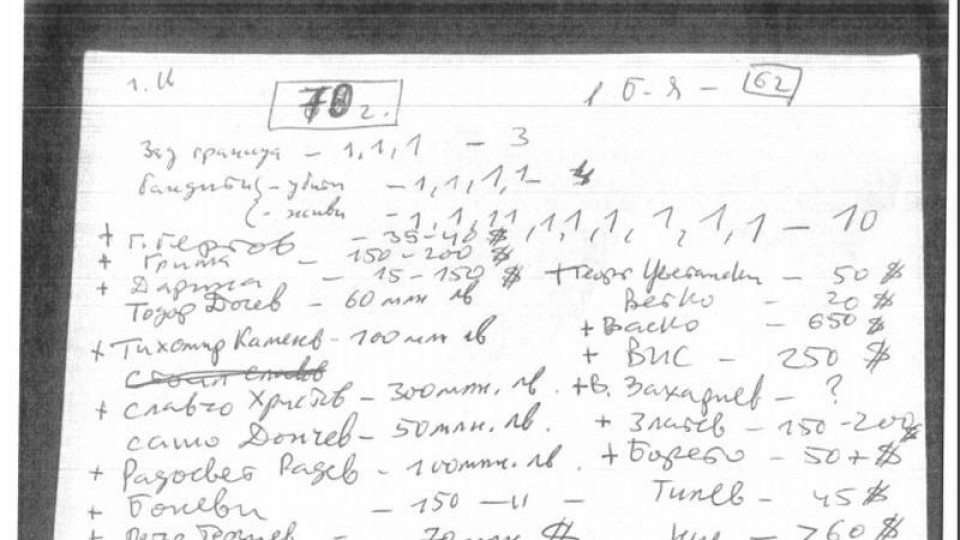 г. И
70 г.
1 Б-Я - 62
Зад граница - 1,1,1 - 3
бандити - убити - 1,1,1,1 -
- живи - 1,1,1,1,1,1,1,1,1,1 - 10
+ Г. Гергов - 35-40 $
+ Гриша - 150-200 $
+ Дарина - 15-150 $
Тодор Дочев - 60 млн лв
+ Тихомир Каменов - 100 млн лв
+ Славчо Христов - 300 млн. лв.
Сашо Дончев - 50 млн. лв.
+ Радосвет Радев - 100 млн. лв.
+ Боневи - 150 -"-
70 млн $
+ Георги Цветански - 50 $
Ветко - 20 $
+ Васко - 650 $
+ ВИС - 250 $
+ В. Захариев - ?
+ Златев - 150-200 $
+ Борето - 50 + $
Тилев - 45 $
Ние - 760 $